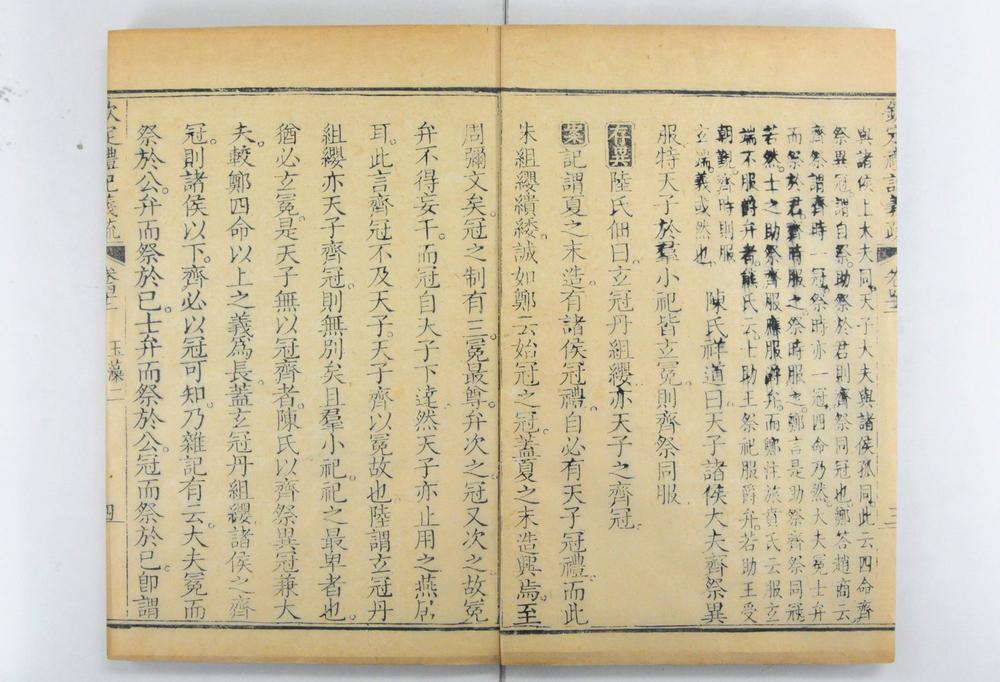 與諸侯上大夫同天子大夫與諸侯孤同此云四命齊
祭異冠謂自祭助祭於君則齊祭同冠也鄭答趙商云
齊祭謂齊時一冠祭時亦一冠四命乃然大夫冕士弁
而祭於君齊時服之祭時服之鄭言是助祭齊祭同冠
若然士之助祭齊服應服爵弁而鄭注旅賁氏云服玄
端不服爵弁者熊氏云士助王祭祀服爵弁若助王受
朝覲齊時則服
玄端義或然也 陳氏祥道曰天子諸侯大夫齊祭異
服特天子於羣小祀皆玄冕則齊祭同服
存異陸氏佃曰玄冠丹組纓亦天子之齊冠
案記謂夏之末造有諸侯冠禮自必有天子冠禮而此
朱組纓繢緌誠如鄭云始冠之冠蓋夏之末造興焉至
周彌文矣冠之制有三冕最尊弁次之冠又次之故冕
弁不得妄干而冠自天子下逹然天子亦止用之燕居
耳此言齊冠不及天子天子齊以冕故也陸謂玄冠丹
組纓亦天子齊冠則無別矣且羣小祀祀之最卑者也
猶必玄冕是天子無以冠齊者陳氏以齊祭異冠兼大
夫較鄭四命以上之義爲長蓋玄冠丹組纓諸侯之齊
冠則諸侯以下齊必以冠可知乃雜記有云大夫冕而
祭於公弁而祭於已士弁而祭於公冠而祭於已卽謂
欽定禮記義疏
玉藻二
四
三